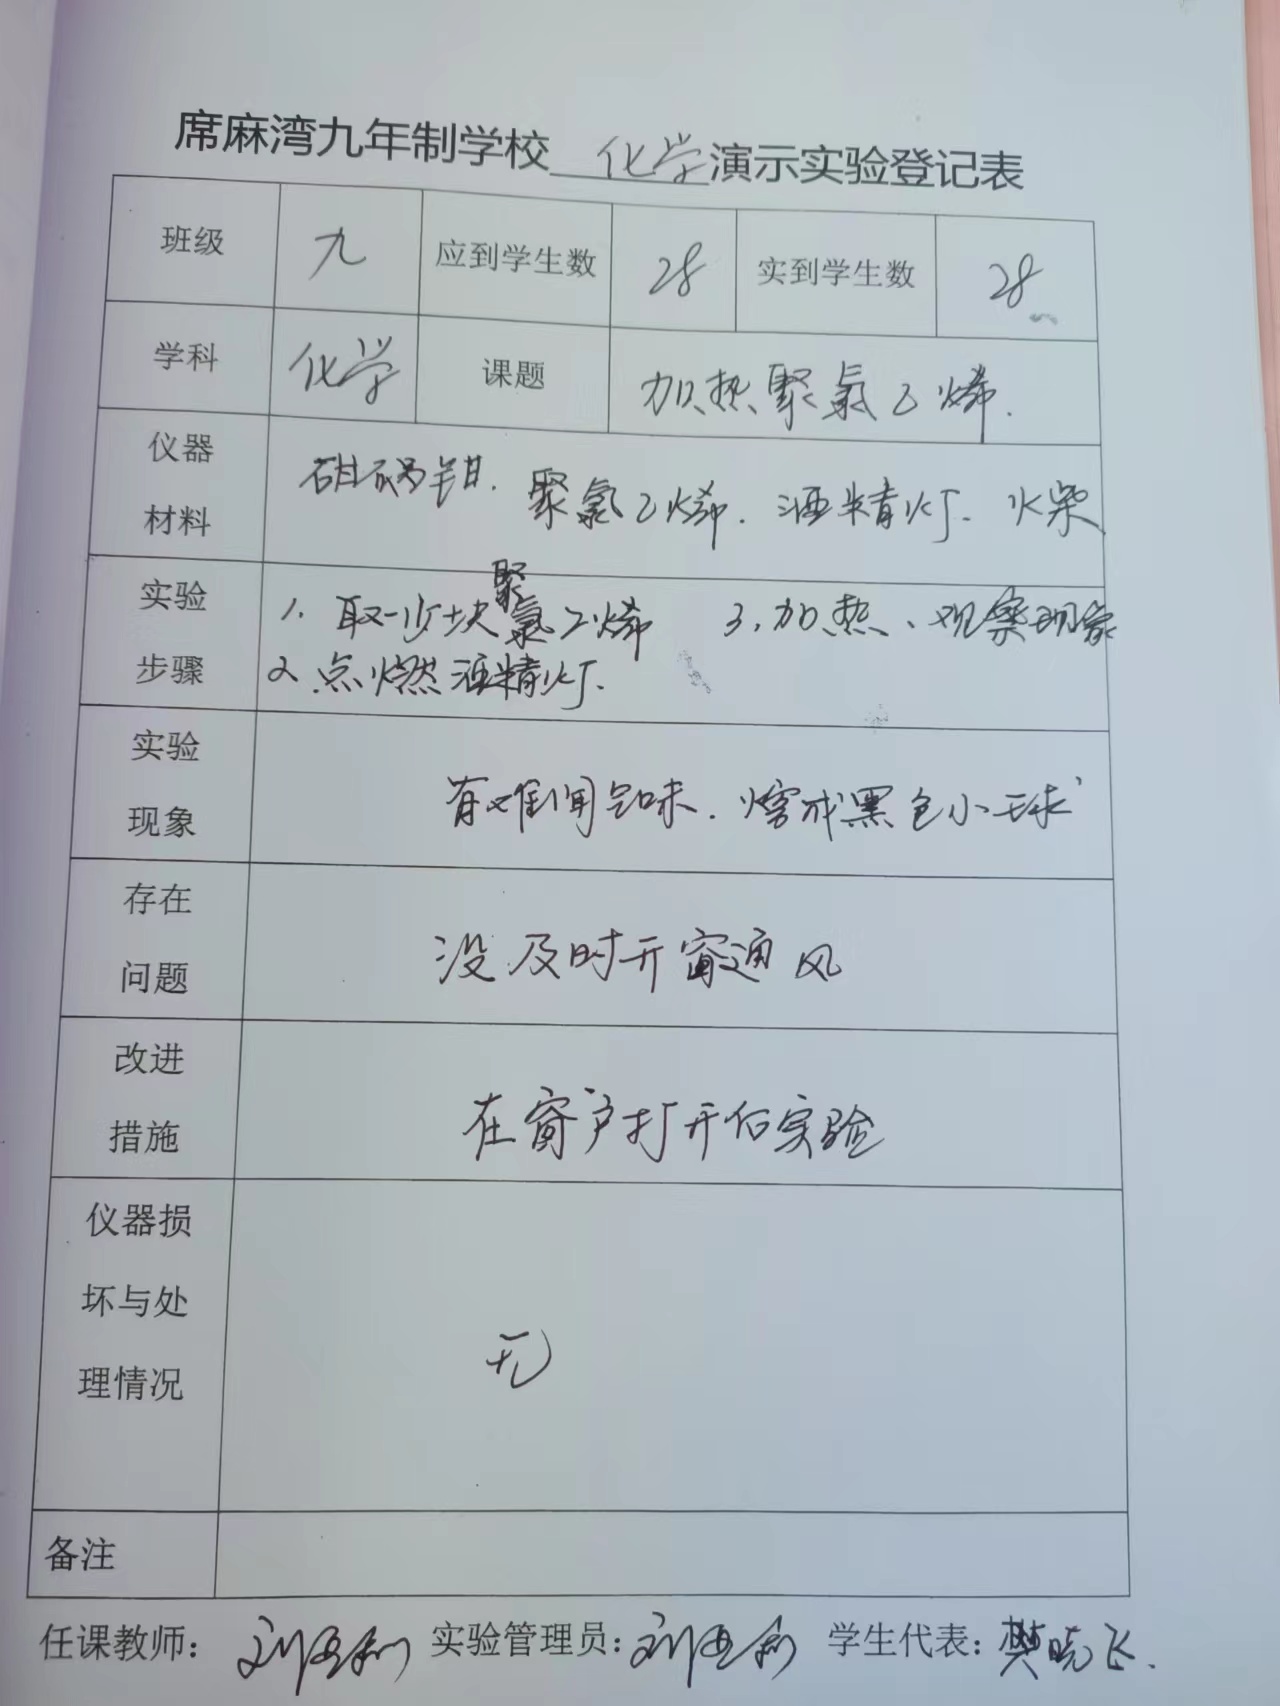 席麻湾九年制学校 化学 演示实验登记表
班级 九 应到学生数 28 实到学生数 28
学科 化学 课题 加热聚氯乙烯.
仪器材料 坩埚钳. 聚氯乙烯. 酒精灯. 火柴
实验步骤 1. 取一小块聚氯乙烯 3. 加热、观察现象
2. 点燃酒精灯.
实验现象 有难闻气味. 熔成黑色小球
存在问题 没及时开窗通风
改进措施 在窗户打开后实验
仪器损坏与处理情况 无
备注
任课教师: 实验管理员: 学生代表: 樊晓飞.